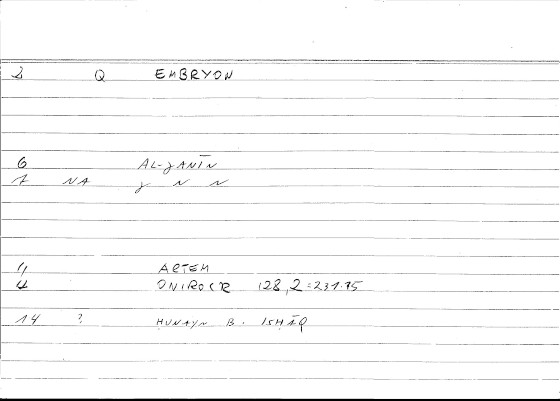 2 Q EMBRYON
6 AL-JANĪN
7 NA J N N
11 ARTEM
4 ONIROCR 128,2=231.15
14 ? HUNAYN B. ISHĀQ